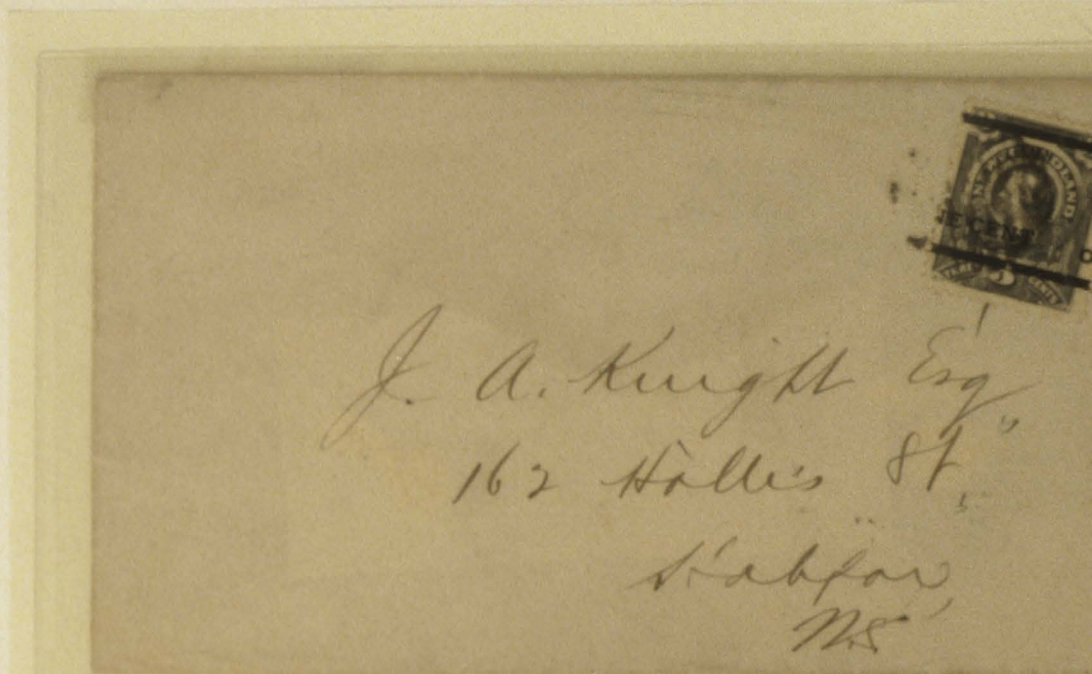 NEWFOUNDLAND
E CENT
CENTS
J. A. Knight Esq
162 Hollis St.
Halifax,
N.S.